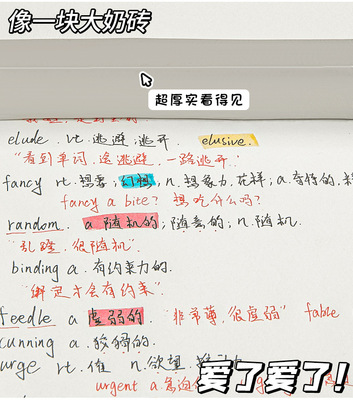 像一块大奶砖
超厚实看得见
elude. vt. 逃避;逃开. elusive.
"看到单词,逃避,一路逃开."
fancy vt. 想要;幻想, n. 想象力,花样; a. 奇特的.
fancy a bite? 想吃什么吗?
random. a 随机的;随意的; n. 随机.
"乱蹬,很随机".
binding a. 有约束力的.
"绑定才会有约束".
feedle a 虚弱的. "非常薄,很虚弱" fable
cunning a. 狡猾的.
urge vt. 催 n. 欲望.
urgent a. 急迫
爱了爱了!